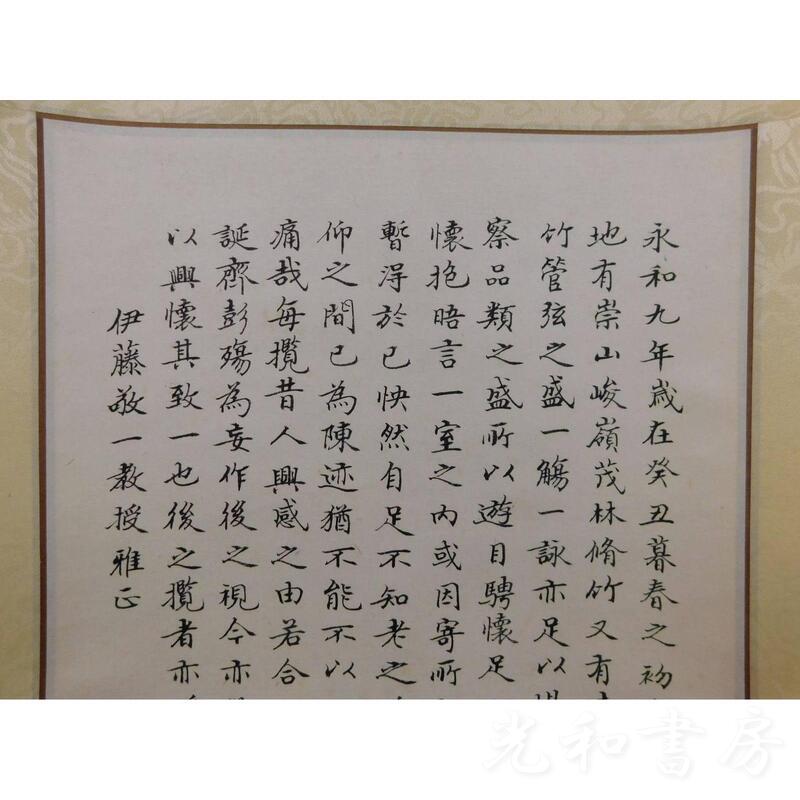 永和九年歲在癸丑暮春之初
地有崇山峻嶺茂林脩竹又有
竹管弦之盛一觴一詠亦足以暢
察品類之盛所以遊目騁懷足
懷抱晤言一室之內或因寄所
暫得於己快然自足不知老之
仰之間已為陳迹猶不能不以
痛哉每攬昔人興感之由若合
誕齊彭殤為妄作後之視今亦
以興懷其致一也後之攬者亦
伊藤敬一教授雅正
光和書房